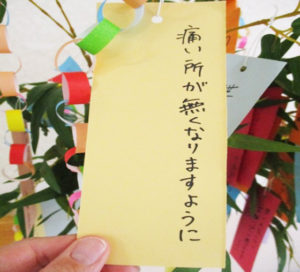 痛い所が無くなりますように